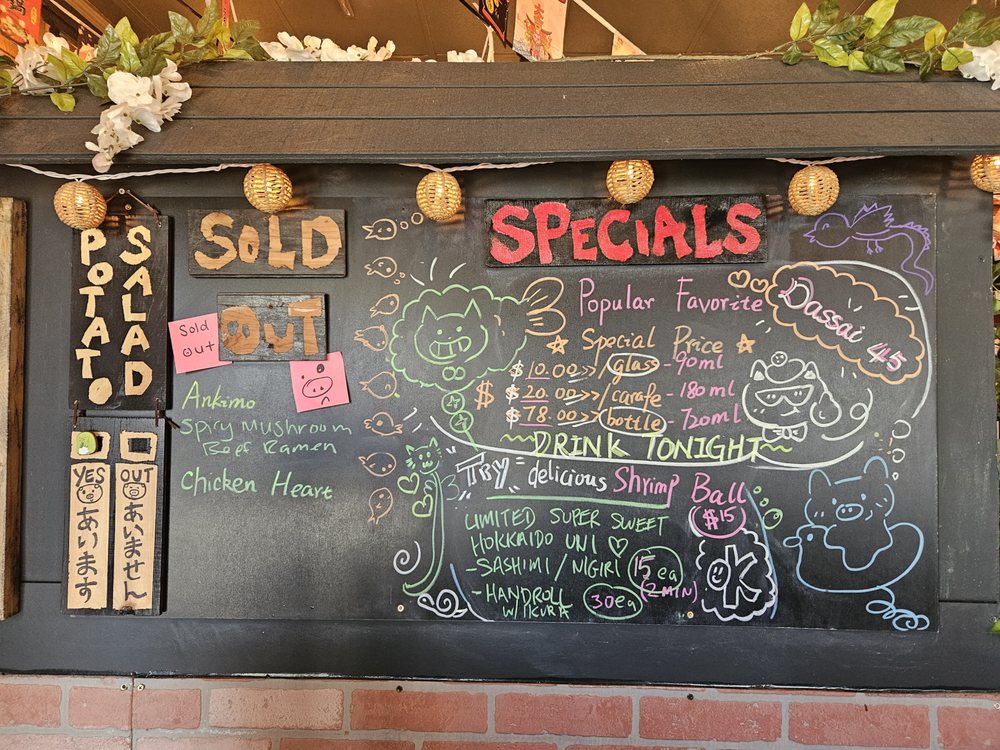 POTATO
SALAD
YES
あいます
OUT
あいません
SOLD
OUT
Sold
out
Ankimo
Spicy Mushroom
Beef Ramen
Chicken Heart
SPECIALS
Popular Favorite
Dassai 45
Special Price
$ 10.00>>/glass - 90ml
$ $ 20.00>>/carafe - 180ml
$ 78.00>>/bottle - 720ml
DRINK TONIGHT
"TRY" delicious Shrimp Ball
$15
LIMITED SUPER SWEET
HOKKAIDO UNI
- SASHIMI / NIGIRI 15ea
(2MIN)
- HANDROLL 30ea
W/ IKURA
OK